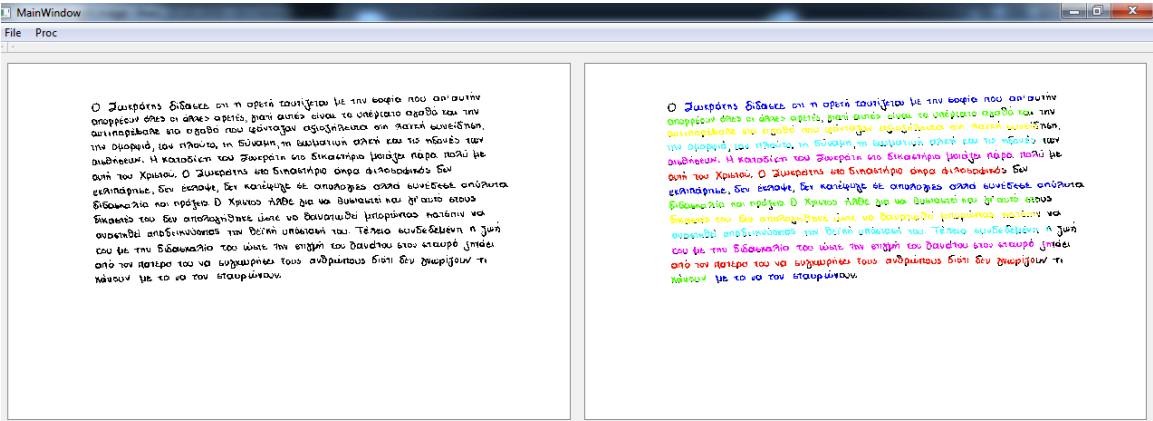 MainWindow
File Proc
Ο Σωκράτης δίδασκε οτι η αρετή ταυτίζεται με την σοφία που απ'αυτήν
απορρέουν όλες οι άλλες αρετές, γιατί αυτές είναι το υπέρτατο αγαθό και την
αντιπαρέβαλε στα αγαθά που φάνταζαν αξιοζήλευτα στη λαϊκή συνείδηση,
την ομορφιά, τον πλούτο, τη δύναμη, τη σωματική αλκή και τις ηδονές των
αισθήσεων. Η καταδίκη του Σωκράτη στο δικαστήριο μοιάζει πάρα πολύ με
αυτή του Χριστού. Ο Σωκράτης στο δικαστήριο άκρα φιλοσοφικός δεν
εκλιπάρησε, δεν έκλαψε, δεν κατέφυγε σε απολογίες αλλά συνέδεσε απόλυτα
διδασκαλία και πράξεις. Ο Χριστος ήλθε για να θυσιαστεί και γι'αυτό στους
δικαστές του δεν απολογήθηκε ώστε να θανατωθεί μπορώντας κατόπιν να
αναστηθεί αποδεικνύοντας την θεϊκή υπόστασή του. Τέλεια συνδεδεμένη η ζωή
του με την διδασκαλία του ώστε την στιγμή του θανάτου στον σταυρό ζητάει
από τον πατέρα του να συγχωρήσει τους ανθρώπους διότι δεν γνωρίζουν τι
κάνουν με το να τον σταυρώνουν.
Ο Σωκράτης δίδασκε οτι η αρετή ταυτίζεται με την σοφία που απ'αυτήν
απορρέουν όλες οι άλλες αρετές, γιατί αυτές είναι το υπέρτατο αγαθό και την
αντιπαρέβαλε στα αγαθά που φάνταζαν αξιοζήλευτα στη λαϊκή συνείδηση,
την ομορφιά, τον πλούτο, τη δύναμη, τη σωματική αλκή και τις ηδονές των
αισθήσεων. Η καταδίκη του Σωκράτη στο δικαστήριο μοιάζει πάρα πολύ με
αυτή του Χριστού. Ο Σωκράτης στο δικαστήριο άκρα φιλοσοφικός δεν
εκλιπάρησε, δεν έκλαψε, δεν κατέφυγε σε απολογίες αλλά συνέδεσε απόλυτα
διδασκαλία και πράξεις. Ο Χριστος ήλθε για να θυσιαστεί και γι'αυτό στους
δικαστές του δεν απολογήθηκε ώστε να θανατωθεί μπορώντας κατόπιν να
αναστηθεί αποδεικνύοντας την θεϊκή υπόστασή του. Τέλεια συνδεδεμένη η ζωή
του με την διδασκαλία του ώστε την στιγμή του θανάτου στον σταυρό ζητάει
από τον πατέρα του να συγχωρήσει τους ανθρώπους διότι δεν γνωρίζουν τι
κάνουν με το να τον σταυρώνουν.